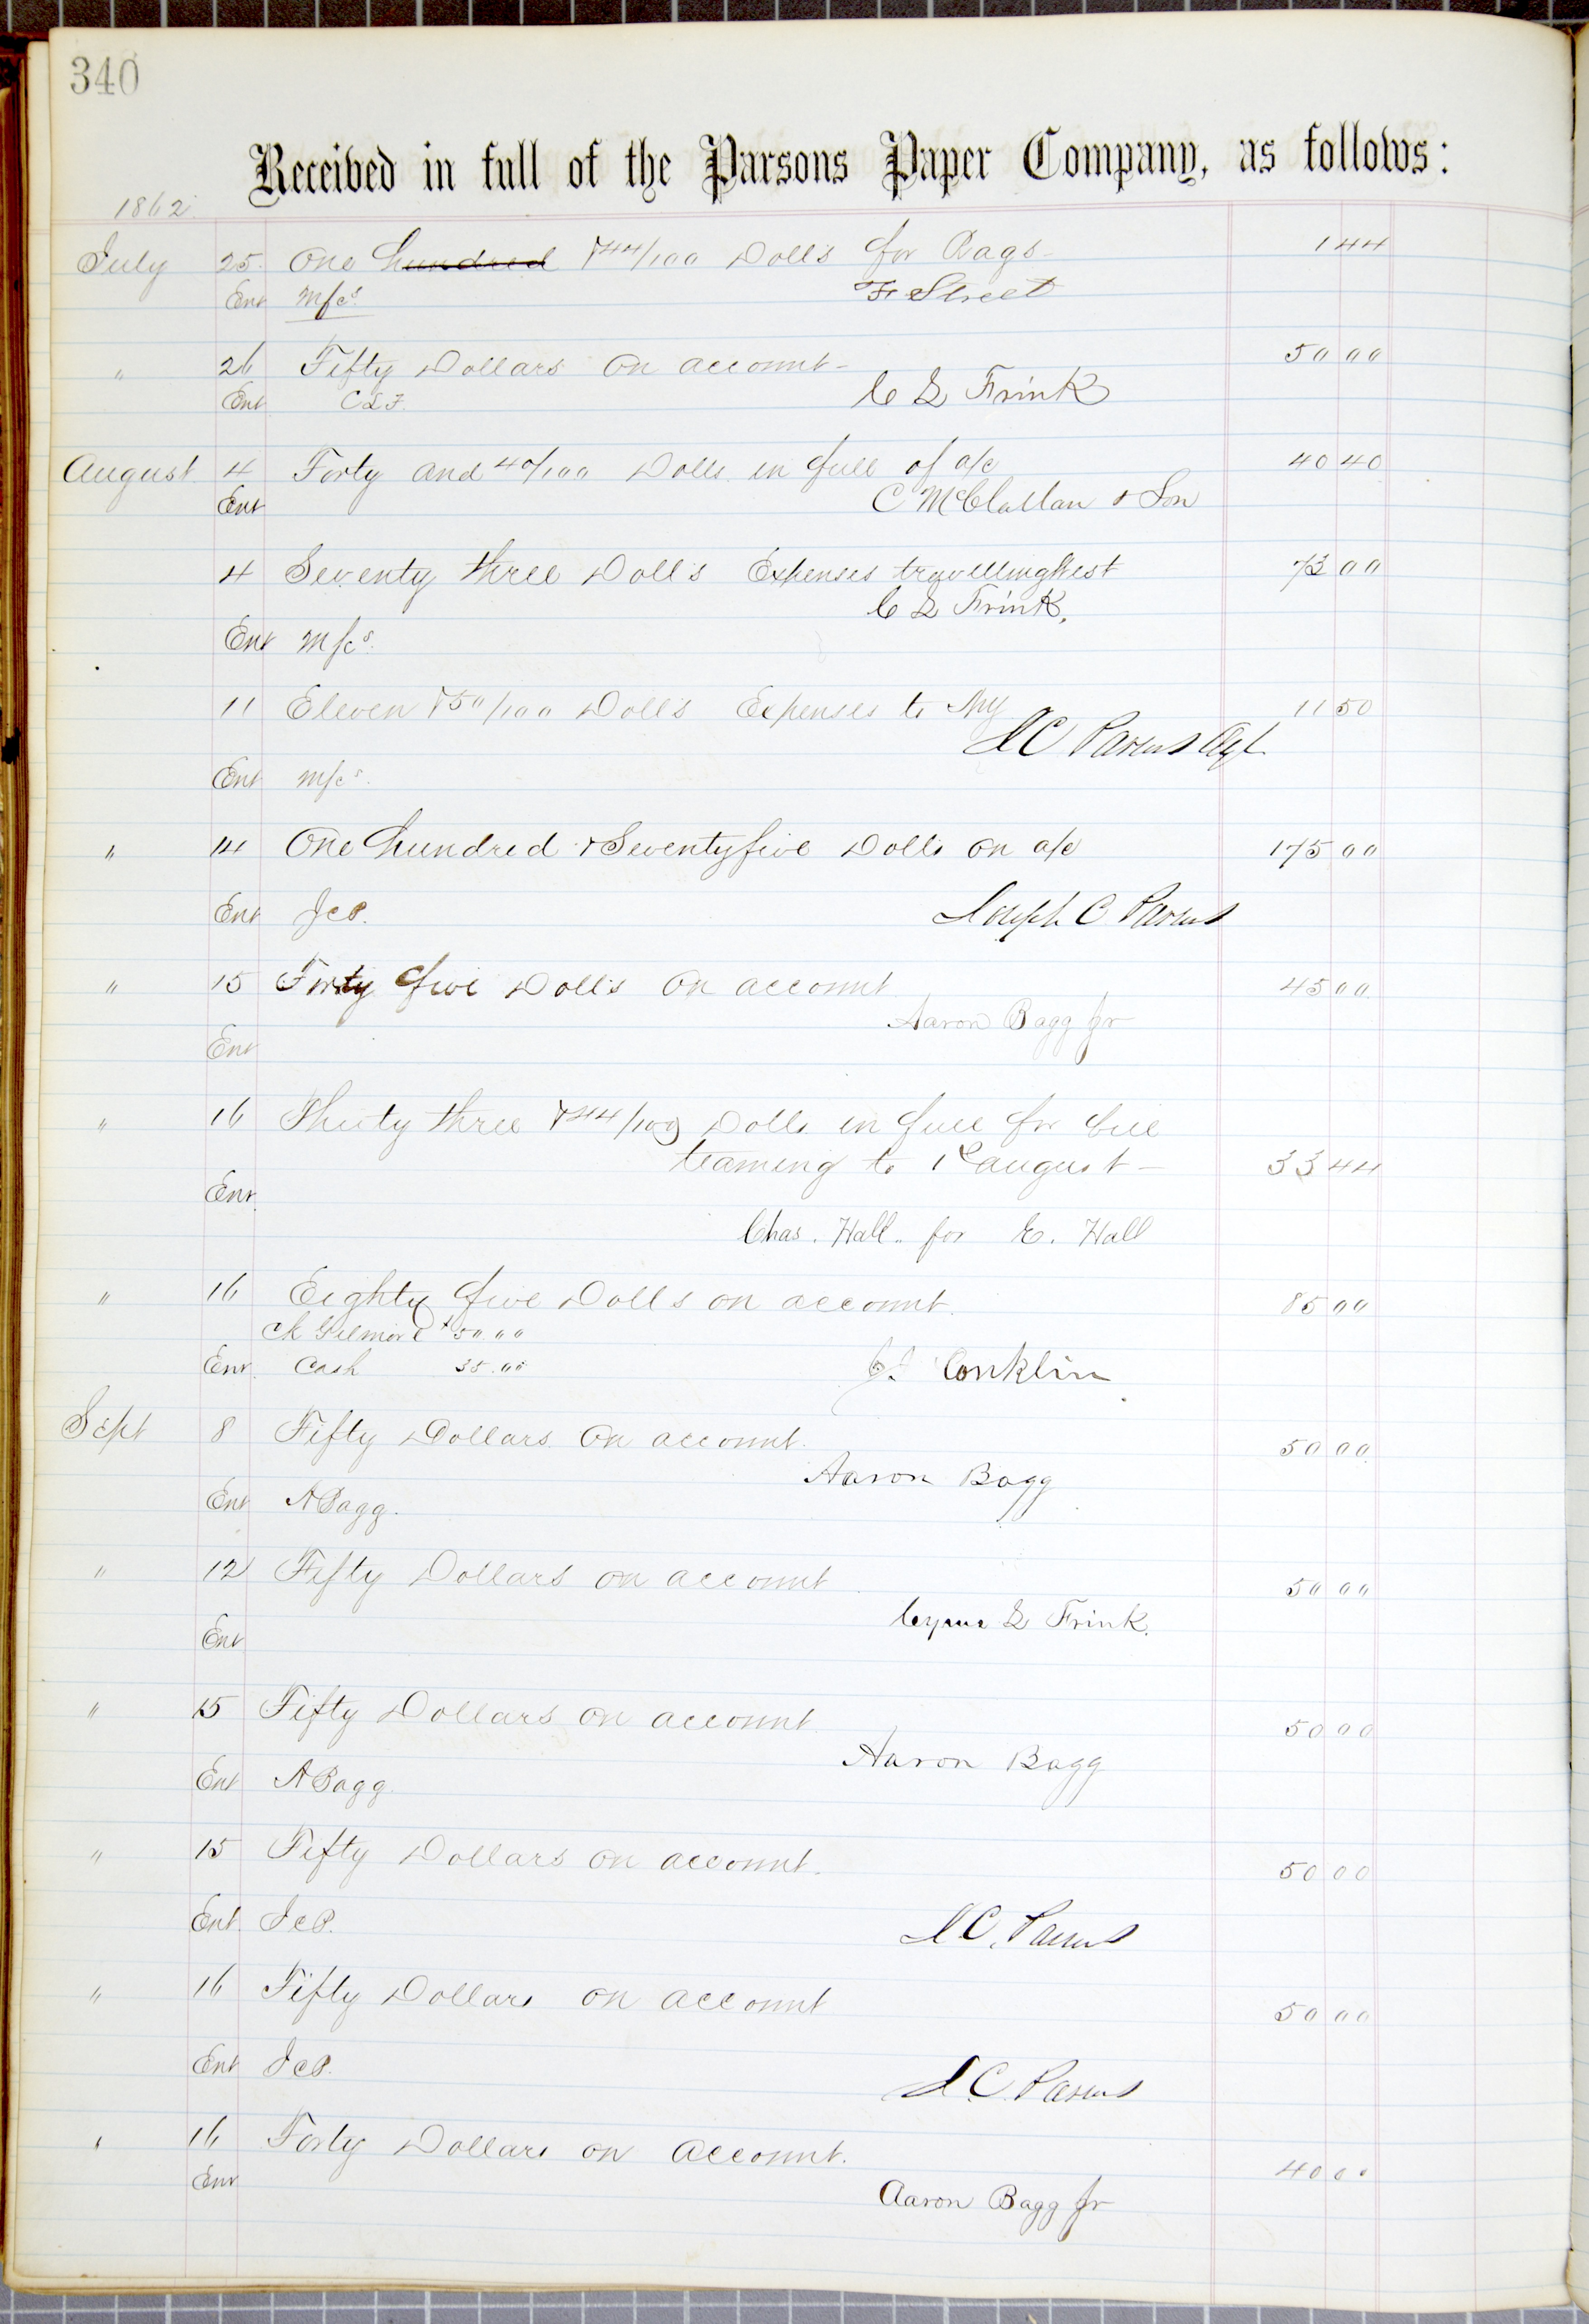 340
Received in full of the Parsons Paper Company, as follows:
1862
July 25. One hundred & 44/100 Dolls for Rags- 1 44
Ent Mfcs. F Street
" 26 Fifty Dollars On account- 50 00
Ent C L F. C L Frink
August 4 Forty and 40/100 Dolls in full of a/c 40 40
Ent C McClallan & Son
4 Seventy three Dolls Expenses travelling West 73 00
C L Frink.
Ent Mfcs.
11 Eleven & 50/100 Dolls Expenses to NY 11 50
J C Parsons Agt
Ent Mfcs.
" 14 One hundred & Seventy five Dolls on a/c 175 00
Ent JCP. Joseph C Parsons
" 15 Forty five Dolls On account 45 00
Aaron Bagg Jr
Ent
" 16 Thirty three & 44/100 Dolls in full for bill
teaming to 1st August - 33 44
Ent.
Chas. Hall. for E. Hall
" 16 Eighty five Dolls on account. 85 00
Ck Gilmore $50.00
Ent. Cash 35.00 Conklin
Sept 8 Fifty Dollars On account. 50 00
Aaron Bagg
Ent A Bagg.
" 12 Fifty Dollars on account 50 00
Cyrus L Frink.
Ent
" 15 Fifty Dollars on account 50 00
Aaron Bagg
Ent A Bagg.
" 15 Fifty Dollars on account. 50 00
Ent. JCP. J. C. Parsons
" 16 Fifty Dollars on account 50 00
Ent JCP. J. C. Parsons
" 16 Forty Dollars on Account. 40 00
Ent
Aaron Bagg Jr